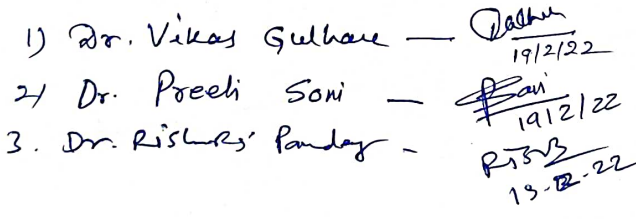 1) Dr. Vikas Gulhare —
19/2/22
2) Dr. Preeti Soni — Soni
19/2/22
3. Dr. Pandey -
19-2-22